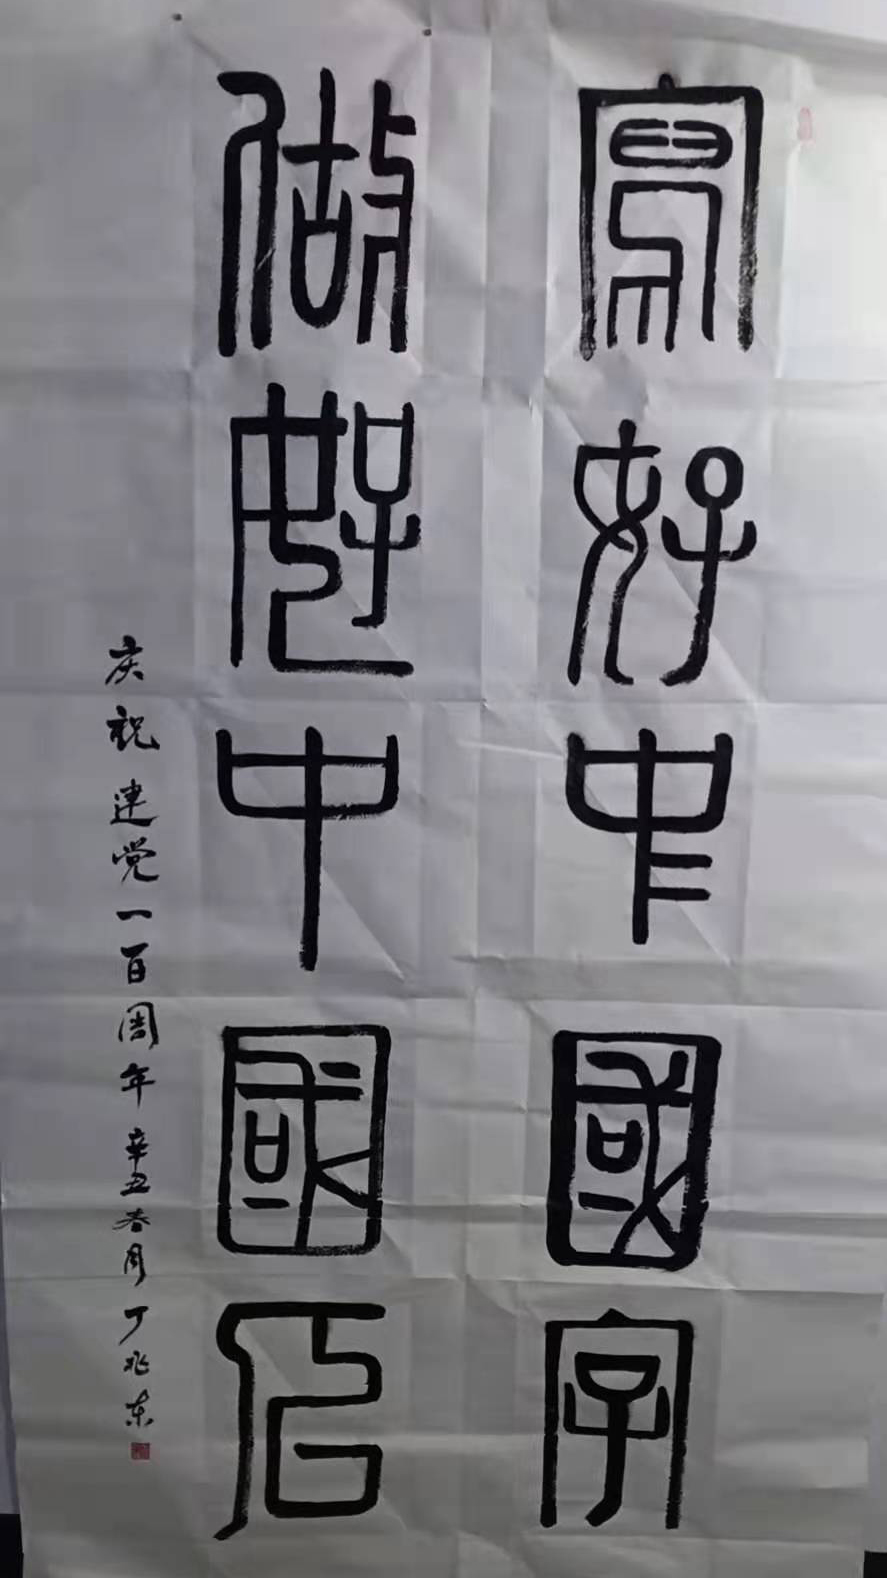 寫好中國字
做好中國
庆祝建党一百周年 辛丑春月 丁兆东